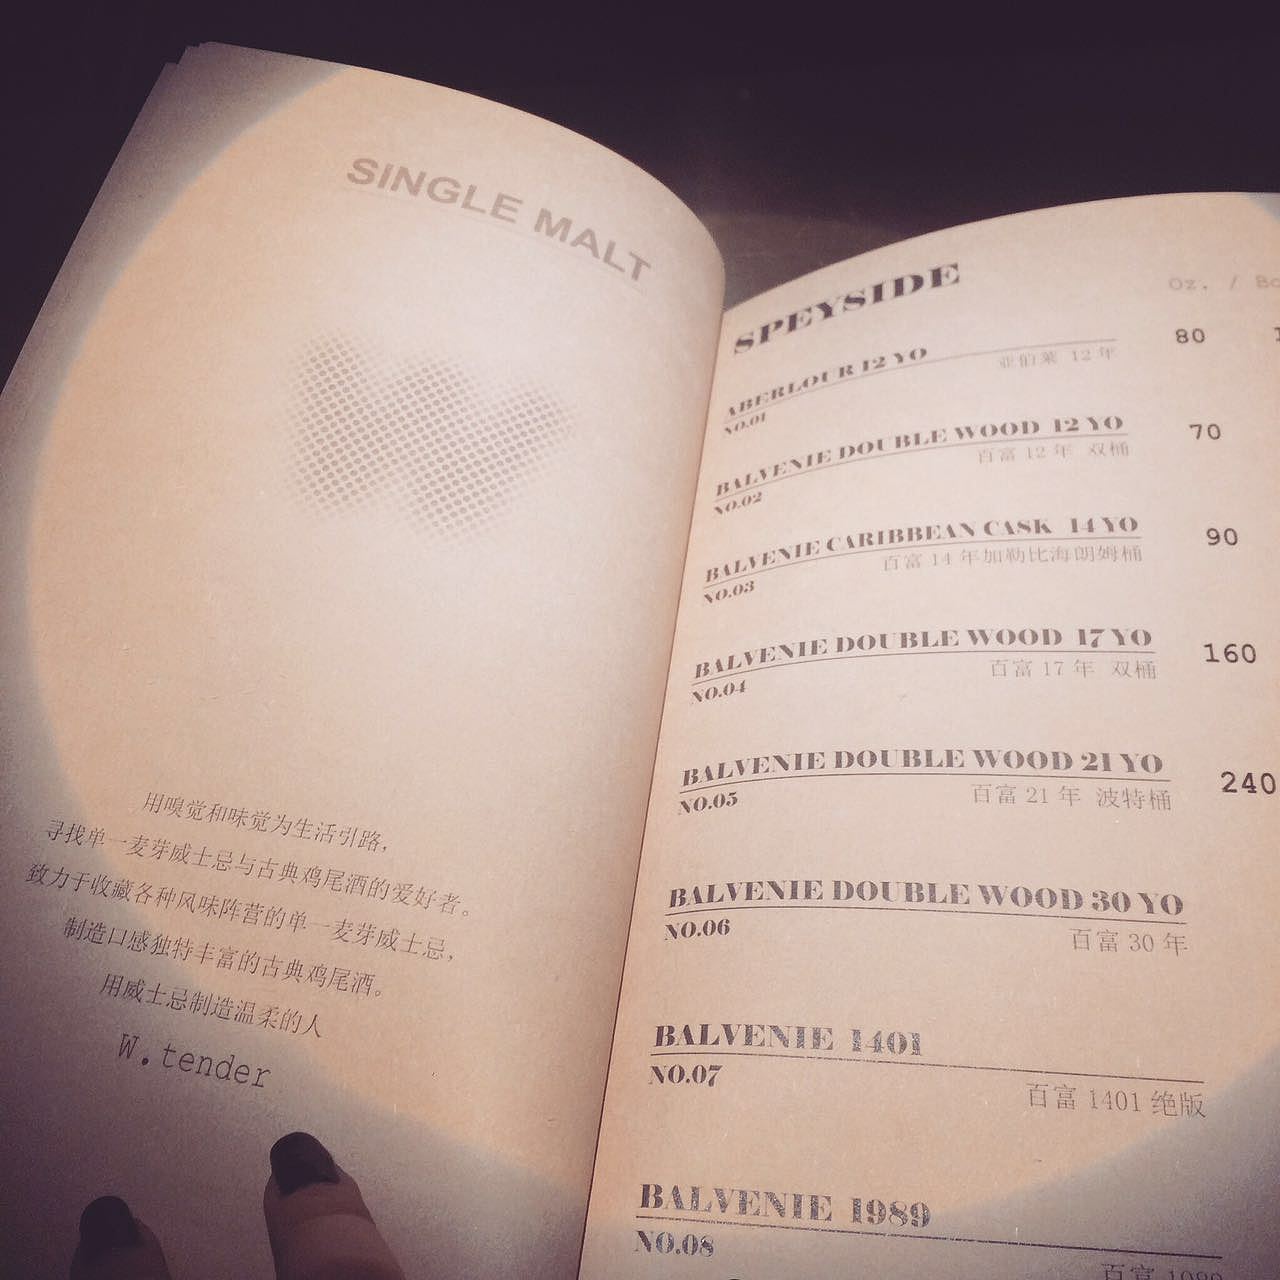 SINGLE MALT
用嗅觉和味觉为生活引路，
寻找单一麦芽威士忌与古典鸡尾酒的爱好者。
致力于收藏各种风味阵营的单一麦芽威士忌，
制造口感独特丰富的古典鸡尾酒。
用威士忌制造温柔的人
W.tender
SPEYSIDE
Oz. /
ABERLOUR 12 YO 80
亚伯莱 12 年
NO.01
BALVENIE DOUBLE WOOD 12 YO 70
百富 12 年 双桶
NO.02
BALVENIE CARIBBEAN CASK 14 YO 90
百富 14 年加勒比海朗姆桶
NO.03
BALVENIE DOUBLE WOOD 17 YO 160
百富 17 年 双桶
NO.04
BALVENIE DOUBLE WOOD 21 YO 240
百富 21 年 波特桶
NO.05
BALVENIE DOUBLE WOOD 30 YO
百富 30 年
NO.06
BALVENIE 1401
NO.07
百富 1401 绝版
BALVENIE 1989
NO.08
百富 1989